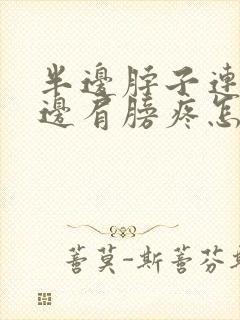 半邊脖子連
邊肩膀疼怎
薔莫-斯薔芬